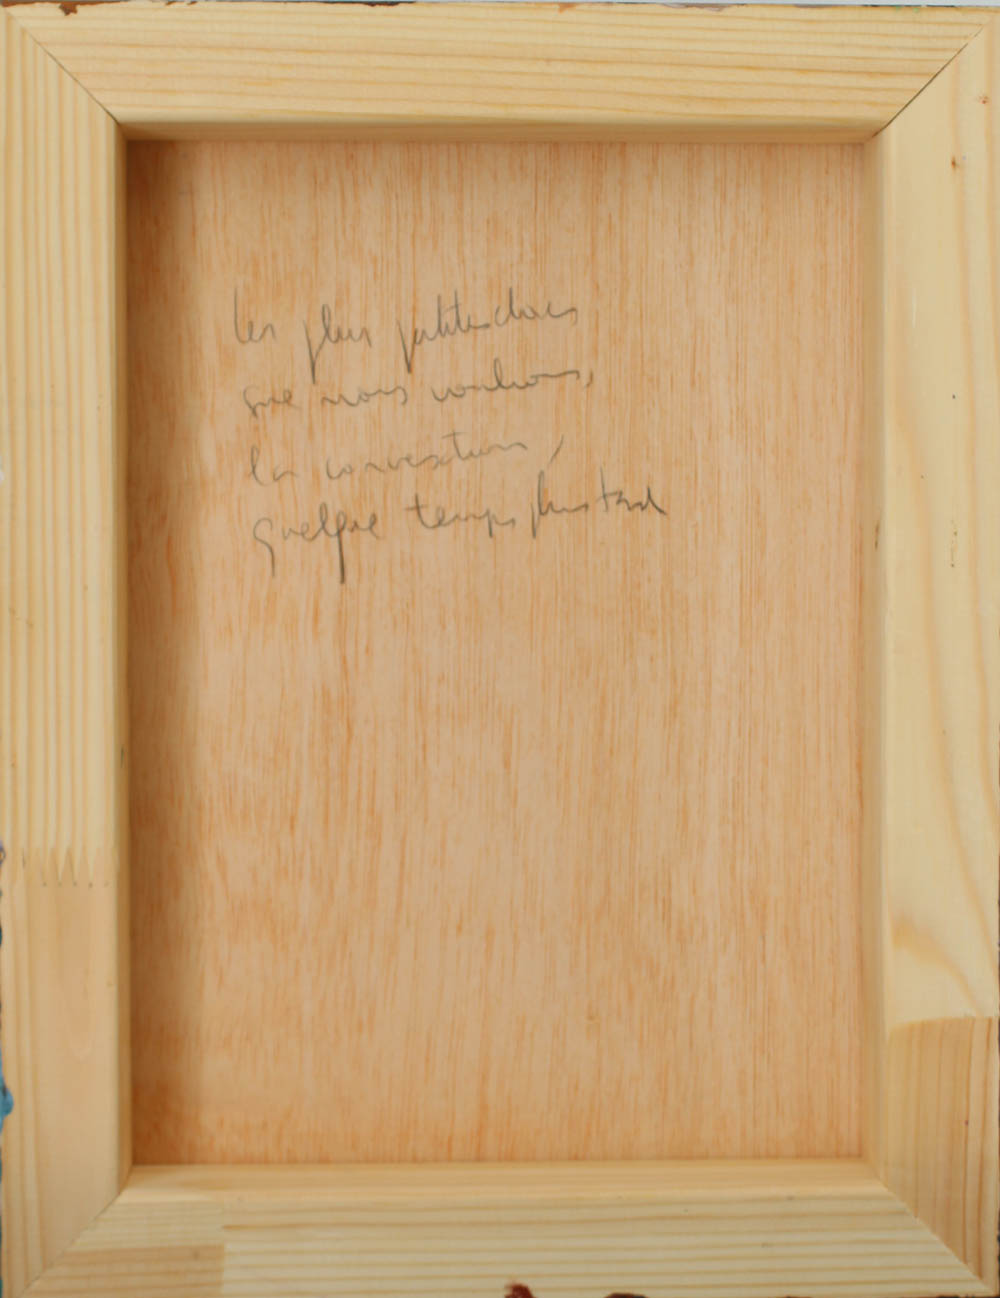 les plus petites choses
que nous voulions,
la conversation,
quelque temps plus tard